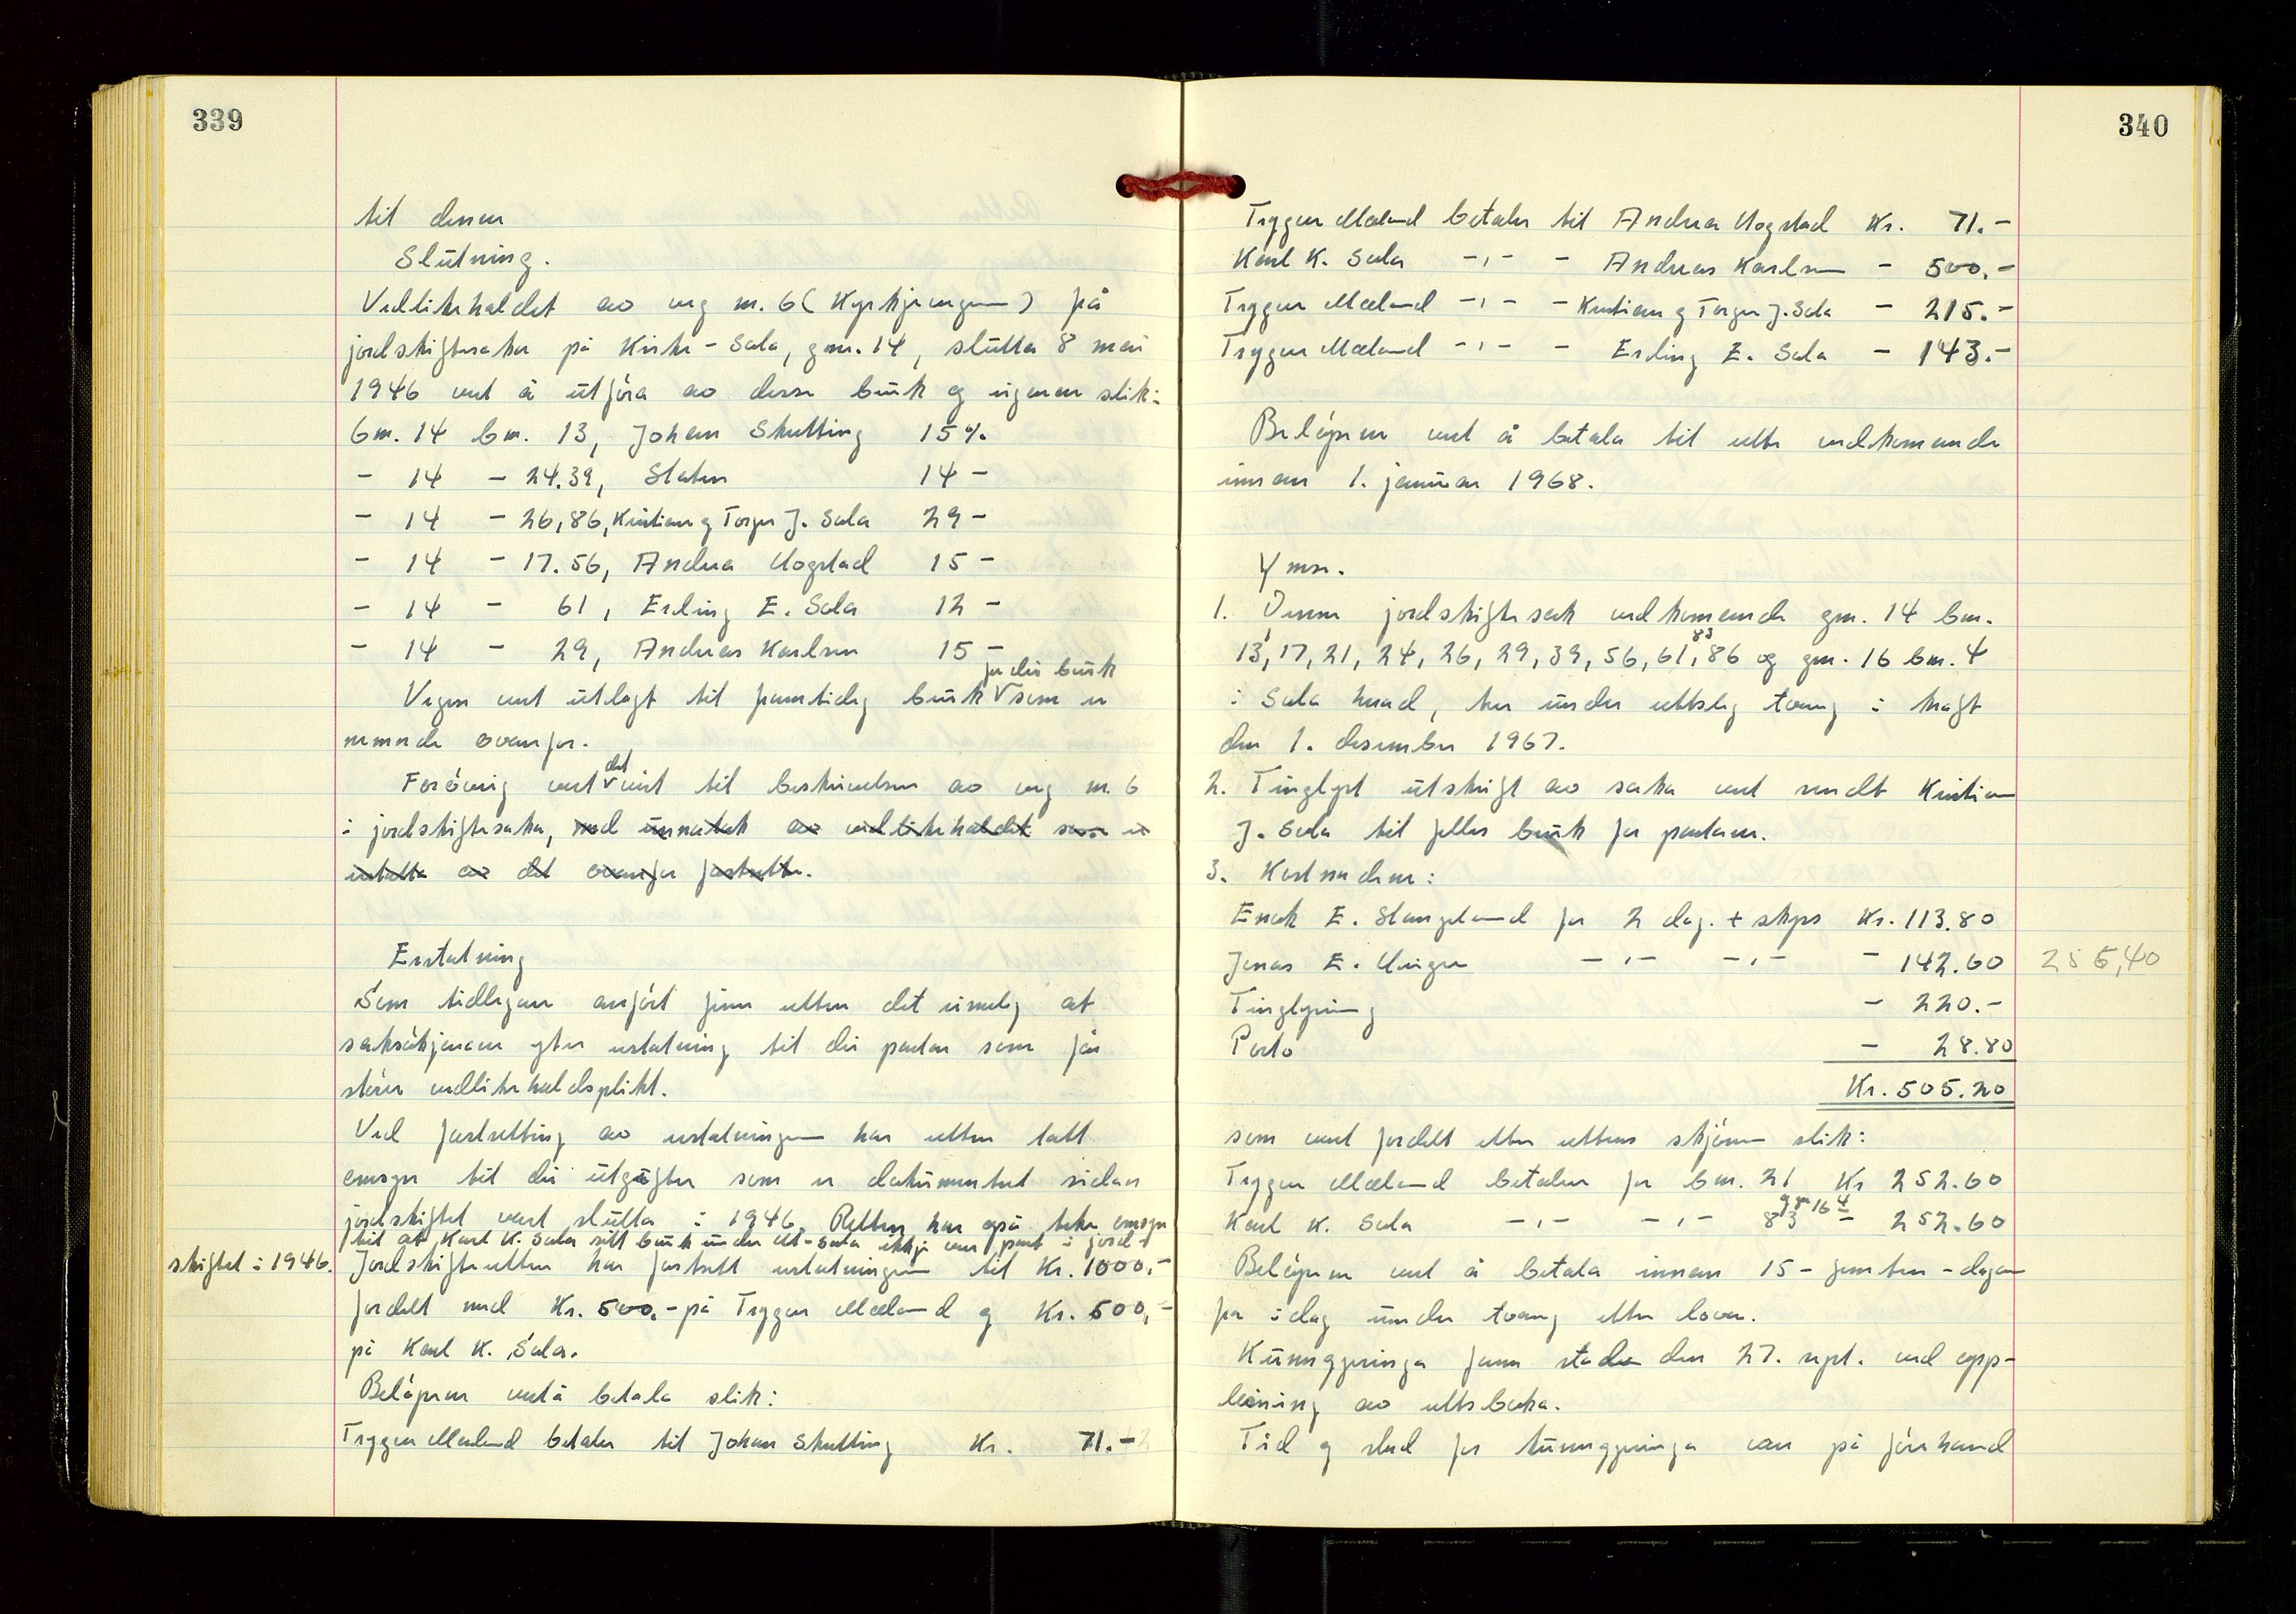 339
til denne
Slutning.
Vedlikehaldet av veg nr. 6 (Kyrkjevegen) på
jordskiftesaka på Kirke-Sola, gnr. 14, slutta 8 mai
1946 vert å utføra av desse bruk og eigarar slik:
Gnr. 14 bnr. 13, Johan Skutling 15%
- 14 - 24.39, Staten 14 -
- 14 - 26,86, Kristian og Torger J. Sola 29 -
- 14 - 17.56, Andrea Hogstad 15 -
- 14 - 61, Erling E. Sola 12 -
- 14 - 29, Andreas Karlsen 15 -
for dei bruk
Vegen vert utlagt til framtidig bruk v som er
nemnde ovanfor.
det
Forøvrig vert v vist til beskrivelsen av veg nr. 6
i jordskiftesaka, med unnatak av vedlikehaldet som er
erstatta av det ovanfor fastsette.
Erstatning
Som tidlegare anført finn retten det rimeleg at
saksøkjarane yter erstatning til dei partar som får
større vedlikehaldsplikt.
Ved fastsetting av erstatningen har retten tatt
omsyn til dei utgifter som er dokumentert sidan
jordskiftet vart slutta i 1946. Retten har også teke omsyn
til at Karl K. Sola sitt bruk under Ut-Sola ikkje var part i jord-
skiftet i 1946.
Jordskifteretten har fastsett erstatningen til Kr. 1000,-
fordelt med Kr. 500,- på Trygve Meland og Kr. 500,-
på Karl K. Sola.
Beløpene vert å betala slik:
Trygve Meland betaler til Johan Skutling Kr. 71.-
340
Trygve Meland betaler til Andrea Hogstad Kr. 71.-
Karl K. Sola -,- - Andreas Karlsen - 500.-
Trygve Meland -,- - Kristian og Torger J. Sola - 215.-
Trygve Meland -,- - Erling E. Sola - 143.-
Beløpene vert å betala til rette vedkomande
innan 1. januar 1968.
Ymse.
1. Denne jordskiftesak vedkomande gnr. 14 bnr.
83
13, 17, 21, 24, 26, 29, 39, 56, 61, 86 og gnr. 16 bnr. 4
i Sola herad, trer under rettsleg tvang i kraft
den 1. desember 1967.
2. Tinglyst utskrift av saka vert sendt Kristian
J. Sola til felles bruk for partane.
3. Kostnadene:
Enok E. Stangeland for 2 dag. + skyss Kr. 113.80
Jonas E. -,- -,- - 142.60
256,40
Tinglysing - 220.-
Porto - 28.80
Kr. 505.20
som vert fordelt etter rettens skjønn slik:
Trygve Meland betaler for bnr. 21 Kr 252.60
og gnr 16 4
Karl K. Sola -,- -,- 83 - 252.60
Beløpene vert å betala innan 15 - femten - dagar
fra idag under tvang etter loven.
Kunngjeringa fann stade den 27. sept. ved opp-
lesning av rettsboka.
Tid og stad for kunngjeringa var på førehand